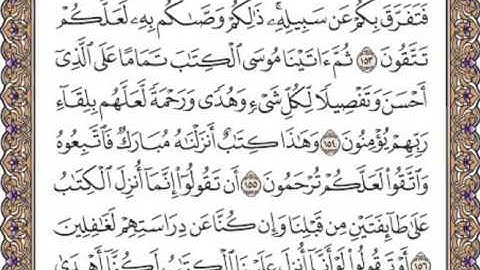 فَتَفَرَّقَ بِكُمْ عَن سَبِيلِهِۦۚ ذَٰلِكُمْ وَصَّىٰكُم بِهِۦ لَعَلَّكُمْ
تَتَّقُونَ ١٥٣ ثُمَّ ءَاتَيْنَا مُوسَى ٱلْكِتَٰبَ تَمَامًا عَلَى ٱلَّذِىٓ
أَحْسَنَ وَتَفْصِيلًا لِّكُلِّ شَىْءٍ وَهُدًى وَرَحْمَةً لَّعَلَّهُم بِلِقَآءِ
رَبِّهِمْ يُؤْمِنُونَ ١٥٤ وَهَٰذَا كِتَٰبٌ أَنزَلْنَٰهُ مُبَارَكٌ فَٱتَّبِعُوهُ
وَٱتَّقُوا۟ لَعَلَّكُمْ تُرْحَمُونَ ١٥٥ أَن تَقُولُوٓا۟ إِنَّمَآ أُنزِلَ ٱلْكِتَٰبُ
عَلَىٰ طَآئِفَتَيْنِ مِن قَبْلِنَا وَإِن كُنَّا عَن دِرَاسَتِهِمْ لَغَٰفِلِينَ
١٥٦ أَوْ تَقُولُوا۟ لَوْ أَنَّآ أُنزِلَ عَلَيْنَا ٱلْكِتَٰبُ لَكُنَّآ أَهْدَىٰ